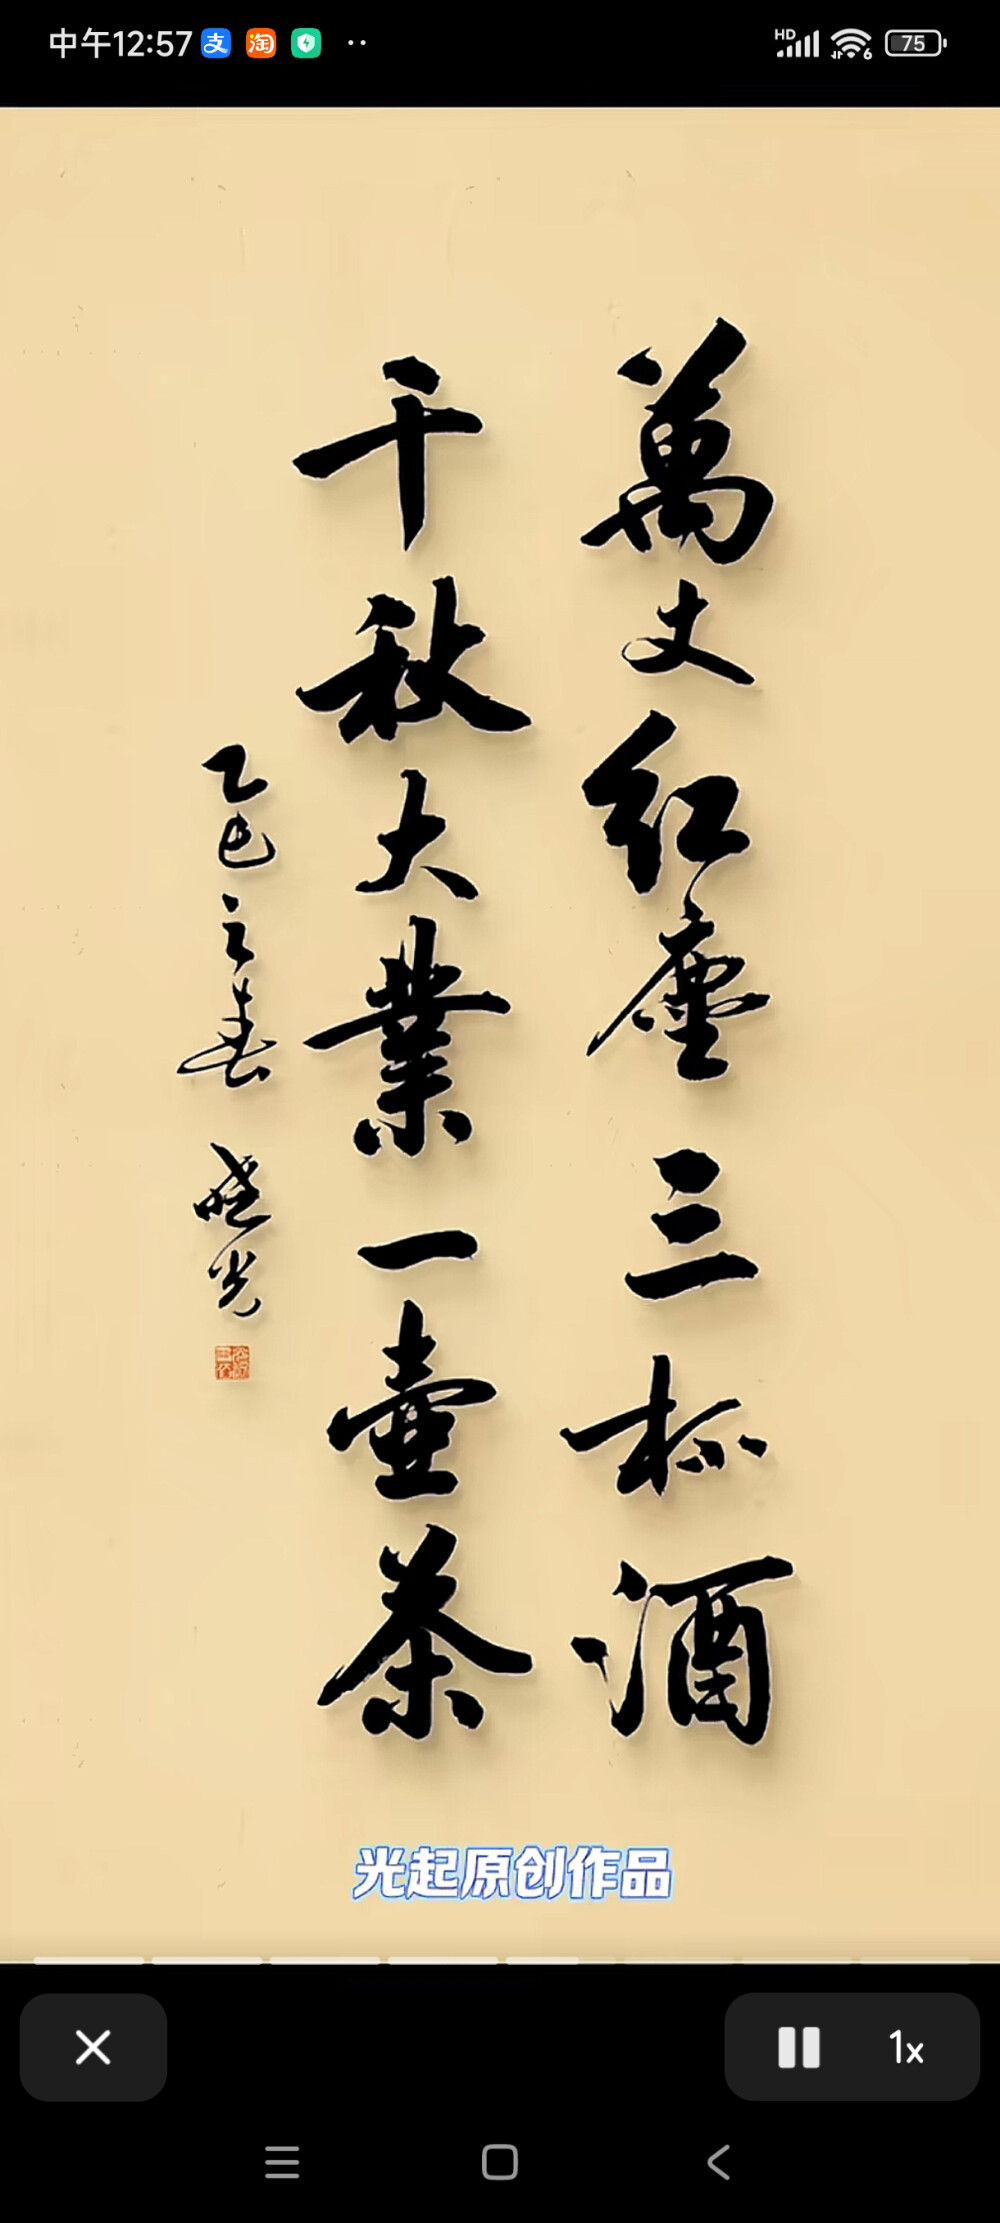 中午12:57
HD
6
75
萬丈红塵三杯酒
千秋大業一壺茶
乙巳之春 晓光
光起原创作品
1x